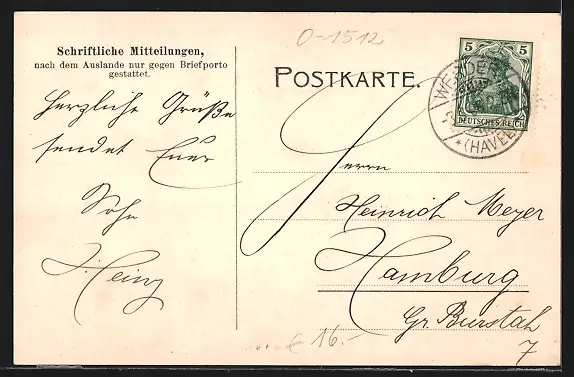 O-1512
Schriftliche Mitteilungen,
nach dem Auslande nur gegen Briefporto
gestattet.
POSTKARTE.
5 5
DEUTSCHES REICH
WERDER
* (HAVEL)
Herzliche Grüße
sendet Euer
Sohn
Heinz
Herrn
Heinrich Meyer
Hamburg
Gr. Burstah
7
€ 16.-